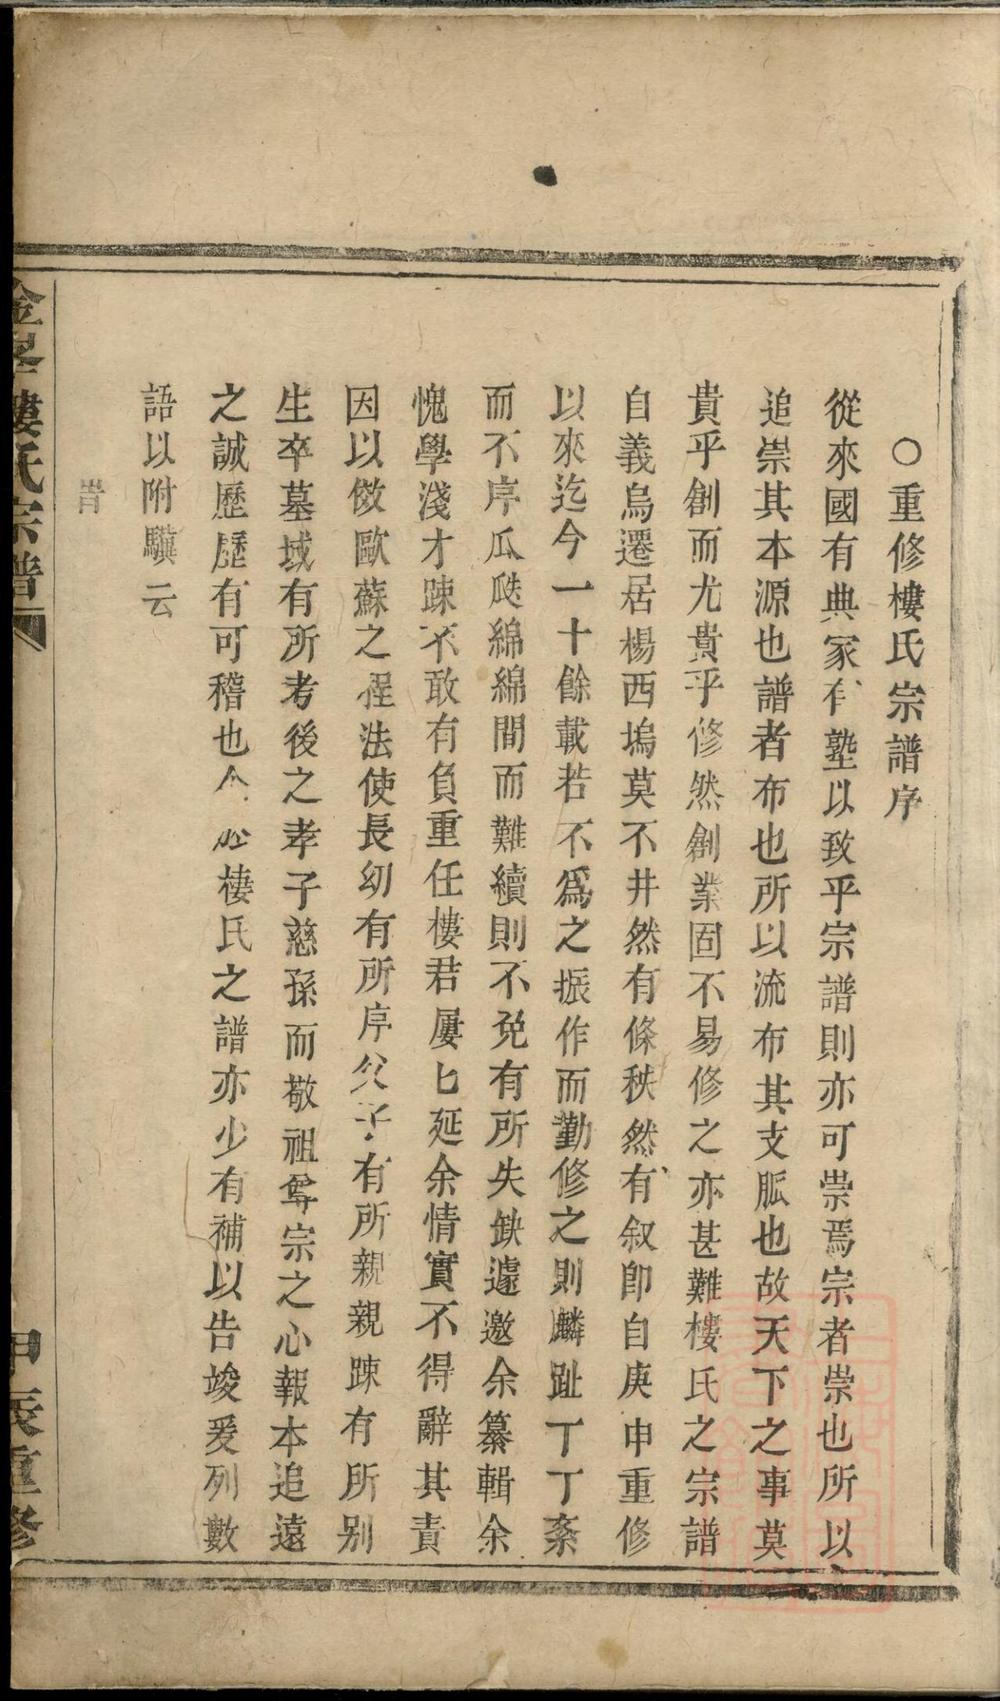 ○重修樓氏宗譜序
從來國有典家有塾以致乎宗譜則亦可崇焉宗者崇也所以
追崇其本源也譜者布也所以流布其支脈也故天下之事莫
貴乎創而尤貴乎修然創業固不易修之亦甚難樓氏之宗譜
自義烏遷居楊西塢莫不井然有條秩然有叙卽自庚申重修
以來迄今一十餘載若不爲之振作而勤修之則麟趾丁丁桼
而不序瓜瓞綿綿間而難續則不免有所失缺遽邀余纂輯余
愧學淺才踈不敢有負重任樓君屢匕延余情實不得辭其責
因以倣歐蘇之程法使長幼有所序父子有所親親踈有所别
生卒墓域有所考後之孝子慈孫而敬祖尊宗之心報本追遠
之誠歷歷有可稽也今 樓氏之譜亦少有補以告竣爰列數
語以附驥云
旹
樓氏宗譜 甲辰重修